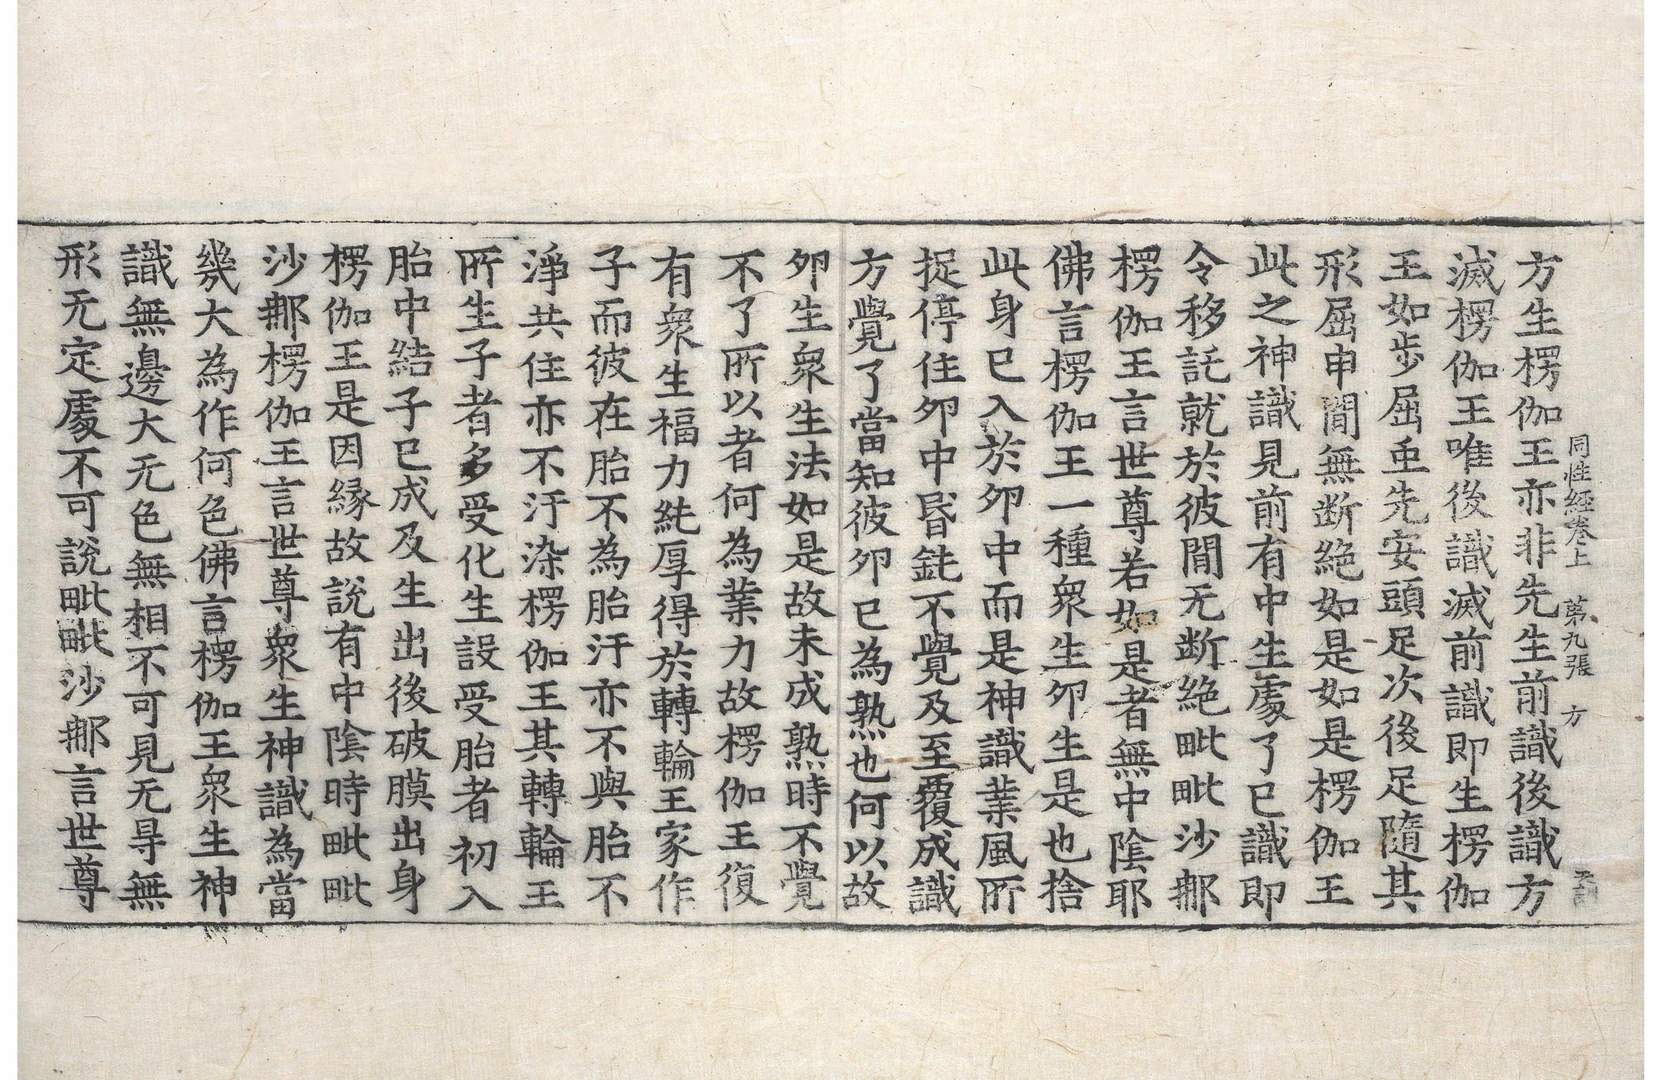 同性經卷上 第九張 方
方生楞伽王亦非先生前識後識方
滅楞伽王唯後識滅前識即生楞伽
王如步屈䖝先安頭足次後足隨其
形屈申閒無断絶如是如是楞伽王
此之神識見前有中生䖏了已識即
令移託就於彼閒无断絶毗毗沙𨚗
楞伽王言世尊若如是者無中陰耶
佛言楞伽王一種衆生夘生是也捨
此身已入於夘中而是神識業風所
捉停住夘中㫪鈍不覺及至覆成識
方覺了當知彼夘已為熟也何以故
夘生衆生法如是故未成熟時不覺
不了所以者何為業力故楞伽王復
有衆生福力純厚得於轉輪王家作
子而彼在胎不為胎汙亦不與胎不
淨共住亦不汙染楞伽王其轉輪王
所生子者多受化生設受胎者初入
胎中結子已成及生出後破膜出身
楞伽王是因緣故說有中陰時毗毗
沙𨚗楞伽王言世尊衆生神識為當
幾大為作何色佛言楞伽王衆生神
識無邊大无色無相不可見无㝵無
形无定䖏不可說毗毗沙𨚗言世尊